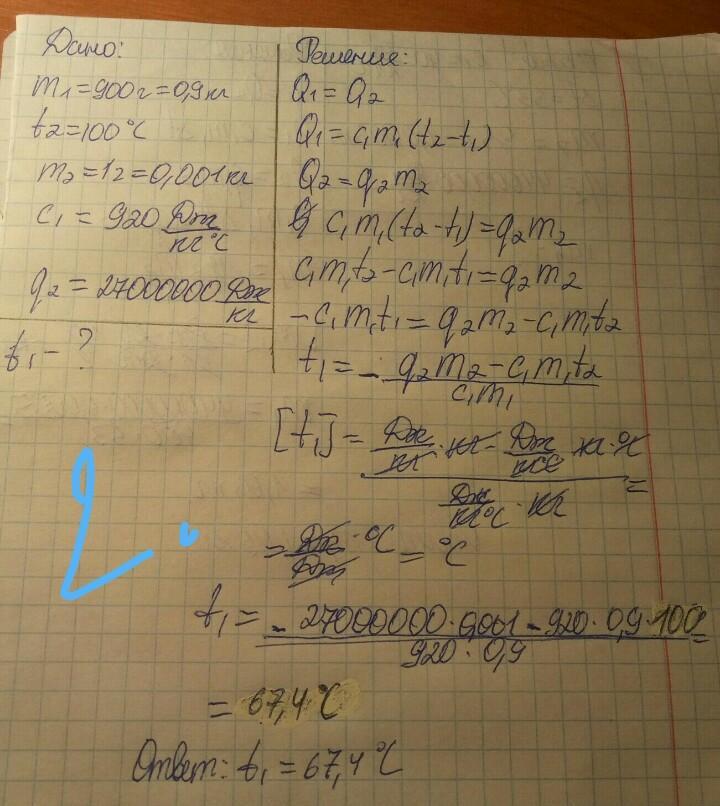 Дано:
m₁=900г=0,9кг
t₂=100°C
m₂=1г=0,001кг
c₁=920 Дж/кг°C
q₂=27000000 Дж/кг
t₁-?
Решение:
Q₁=Q₂
Q₁=c₁m₁(t₂-t₁)
Q₂=q₂m₂
c₁m₁(t₂-t₁)=q₂m₂
c₁m₁t₂-c₁m₁t₁=q₂m₂
-c₁m₁t₁=q₂m₂-c₁m₁t₂
t₁=- q₂m₂-c₁m₁t₂/c₁m₁
[t₁]= Дж/кг·кг-Дж/кг°C кг·°C / Дж/кг°C·кг =
= Дж·°C/Дж = °C
2.
t₁= - 27000000·0,001-920·0,9·100/920·0,9 =
= 67,4°C
Ответ: t₁=67,4°C